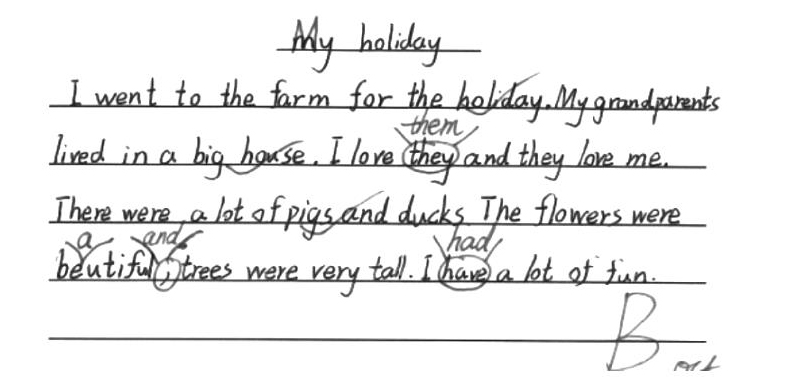 My holiday
I went to the farm for the holiday. My grandparents
them
lived in a big house. I love they and they love me.
There were a lot of pigs and ducks The flowers were
a and had
beutiful, trees were very tall. I have a lot of fun.
B